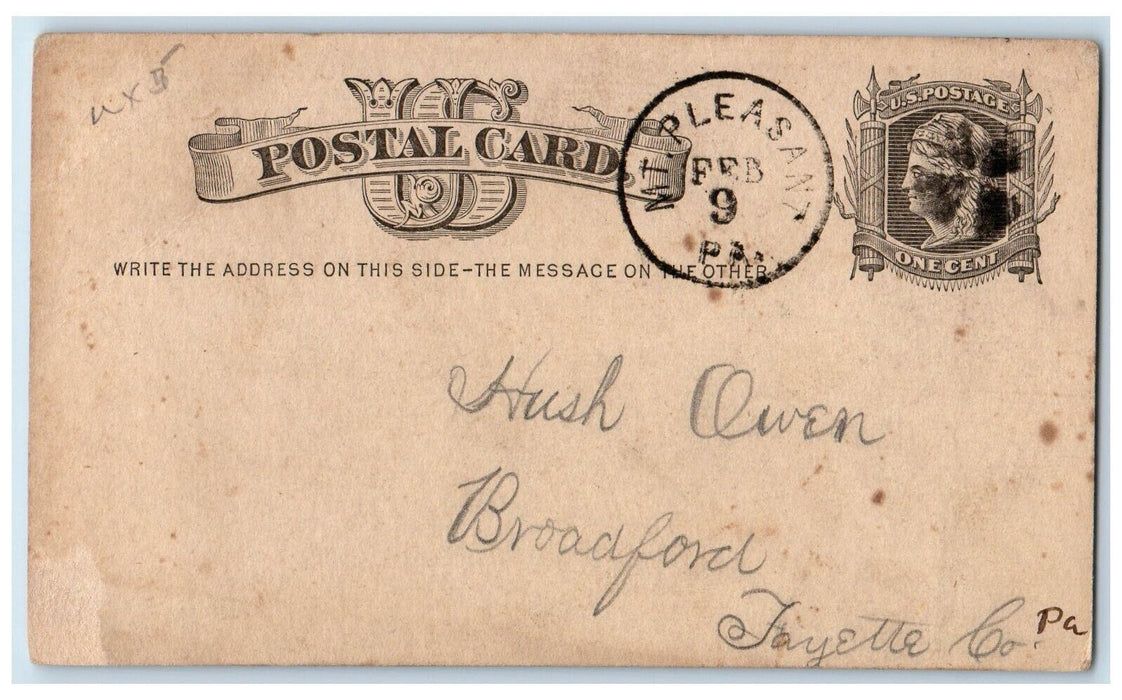 US
POSTAL CARD.
U.S. POSTAGE
ONE CENT
MT. PLEASANT
FEB
9
PA.
WRITE THE ADDRESS ON THIS SIDE-THE MESSAGE ON THE OTHER
Hush Owen
Broadford
Fayette Co. Pa